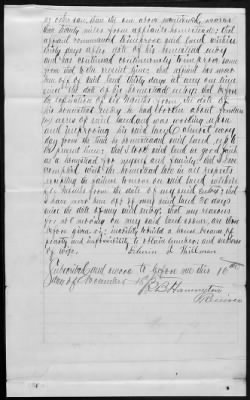 or other son, than the one above mentioned, nearer
than twenty miles from affiants homestead; that
affiant commenced to improve said land within
thirty days after date of his homestead entry
and has continued continuously to improve same
from that to the present time; that affiant has never
been off of said land thirty days at any one time
since the date of his homestead entry; that before
the expiration of six months from the date of
his homestead entry he had broke about
acres of said land and was working upon
and improving his said land almost every
day from the time he homesteaded said land up to
the present time; that I took said land in good faith
as a homestead for myself and family; that I have
complied with the homestead law in all respects
excepting the failure to move on said land within
six months from the date of my said entry; that
I have never been off of my said land 30 days
since the date of my said entry; that my reasons
for not moving on my said land sooner, are those
before given, viz; inability to build a house because of
poverty and impossibility to obtain lumber, and sickness
of wife.
Subscribed and sworn to before me this 10th
day of November
Receiver